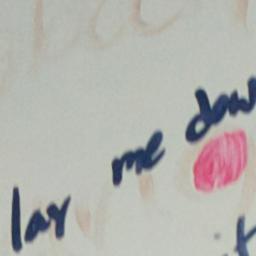 lay me dow
it